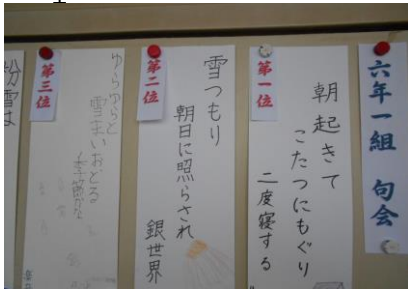 六年一組 句会
第一位
朝起きて
こたつにもぐり
二度寝する
第二位
雪つもり
朝日に照らされ
銀世界
第三位
ゆらゆらと
雪まいおどる
季節かな
粉雪は